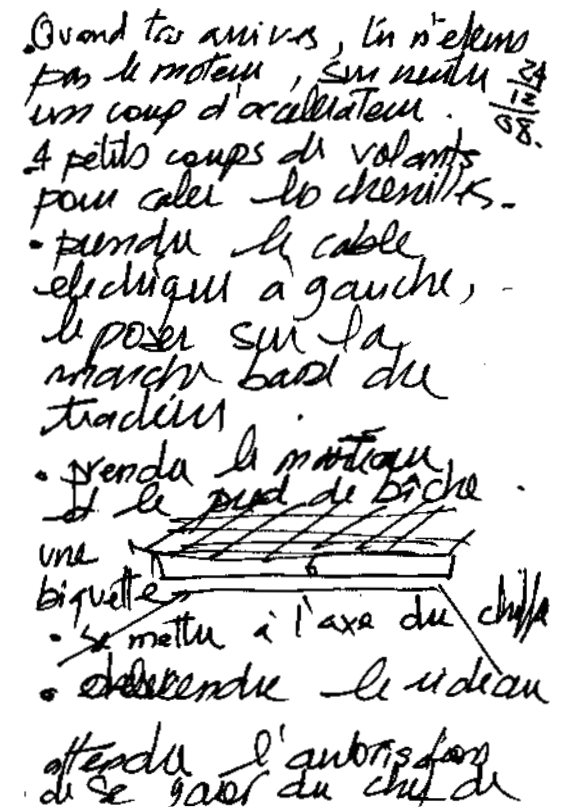 .Quand tu arrives, tu n'eteins
pas le moteur, sur
24
12
08.
un coup d'accelerateur.
.4 petits coups de volants
pour caler les chenilles.
. prendre le cable
electrique a gauche,
le poser sur la
marche basse du
tracteur
. prendre le marteau
et le pied de bîche.
une
biquette
6
. Se mettre à l'axe du chiffre
. descendre le rideau
attendre l'autorisation
de se garer du chef de